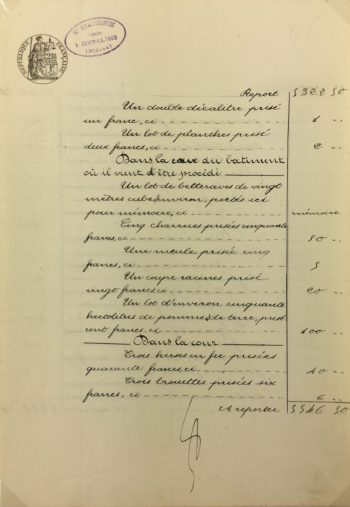 RÉPUBLIQUE FRANÇAISE
A CERCY-LA-TOUR
(Nièvre)
Report 5322 50
Un double décalitre prisé
un franc, ci 1 "
Un lot de planches prisé
deux francs, ci 2 "
Dans la cour du batiment
où il vient d'être procédé
Un lot de betteraves de vingt
mètres cubes environ, portés ici
pour mémoire, ci mémoire
Cinq charrues prisées cinquante
francs, ci 50 "
Une meule prisée cinq
francs, ci 5
Un coupe racines prisé
vingt francs ci 20 "
Un lot d'environ cinquante
hectolitres de pommes de terre, prisé
cent francs, ci 100 "
Dans la cour
Trois herses en fer prisées
quarante francs, ci 40 "
Trois brouettes prisées six
francs, ci 6 "
A reporter 5546 50